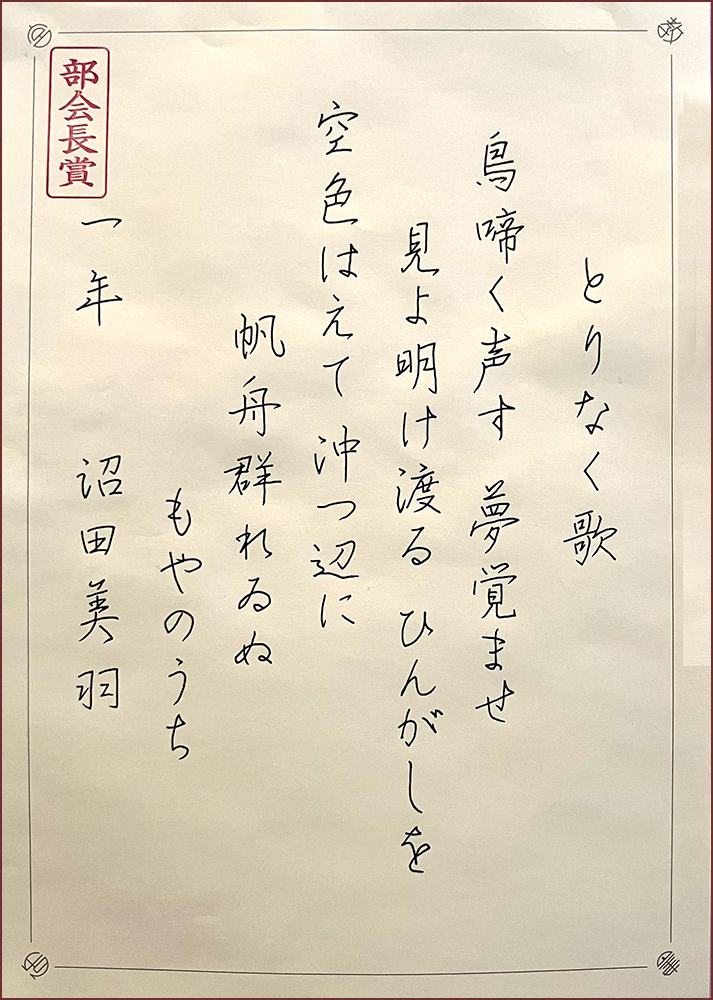 とりなく歌
鳥啼く声す 夢覚ませ
見よ明け渡る ひんがしを
空色はえて 沖つ辺に
帆舟群れゐぬ
もやのうち
部会長賞
一年 沼田美羽